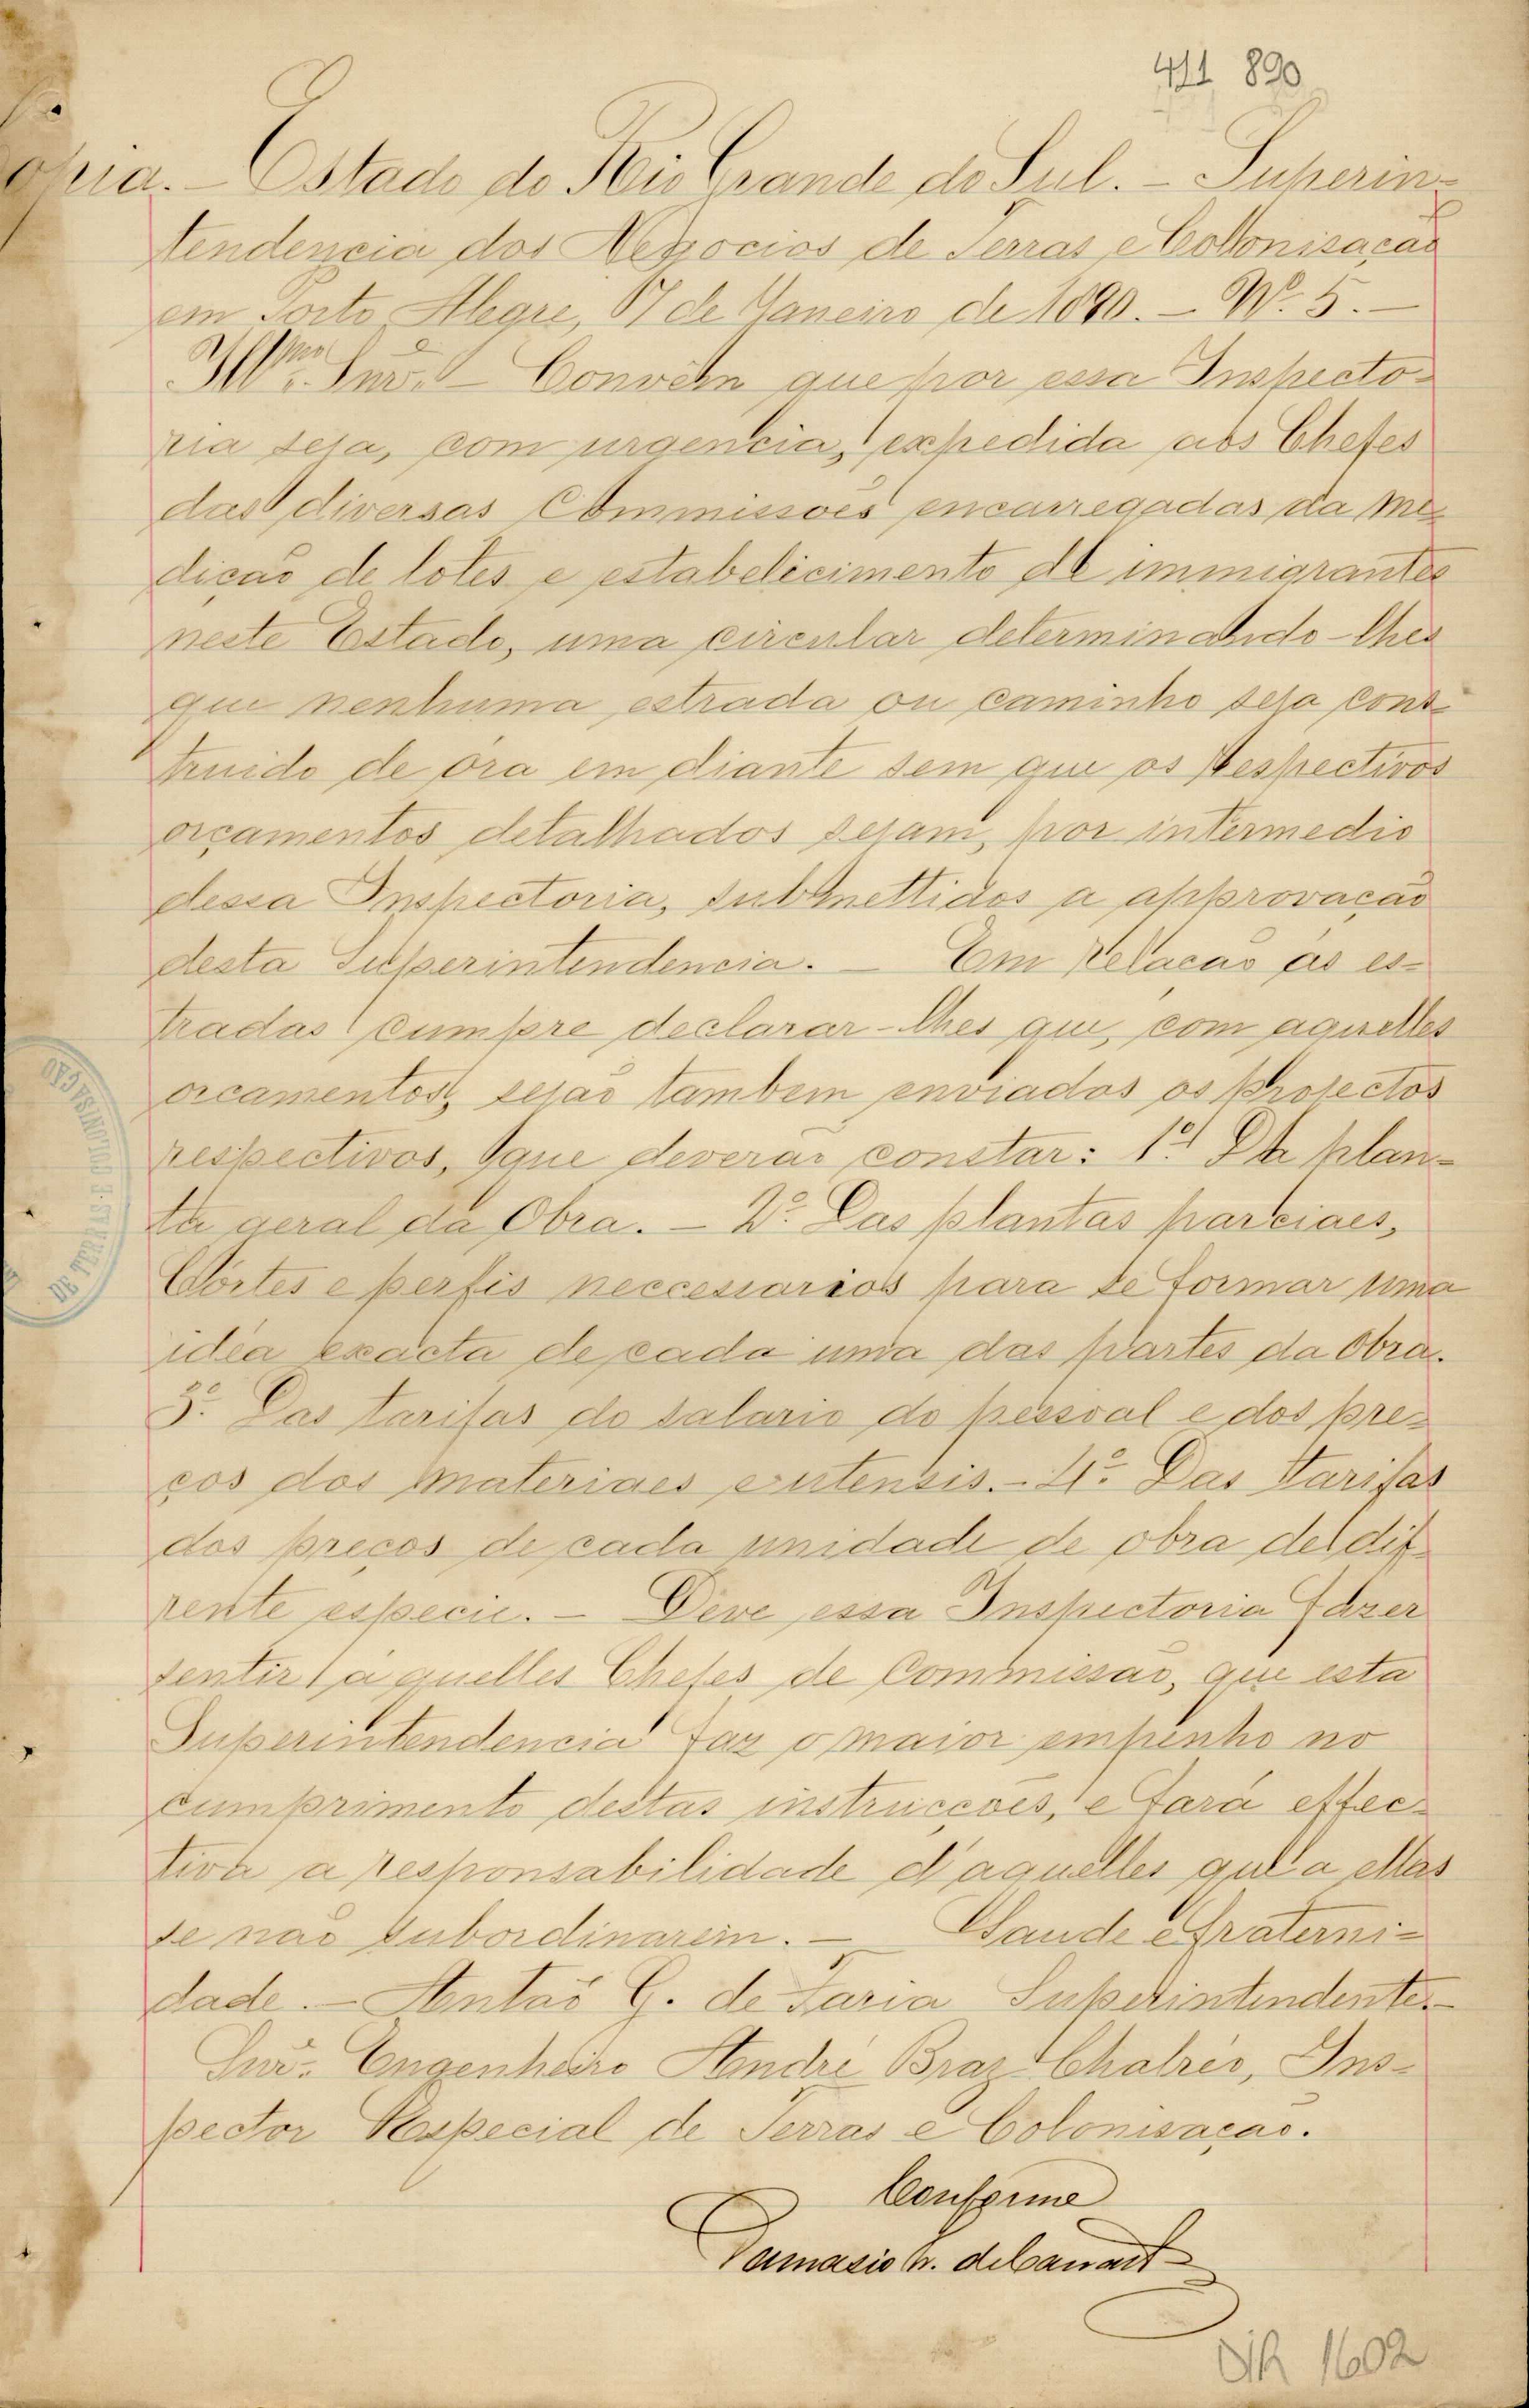 411 890
Copia. – Estado do Rio Grande do Sul. – Superin-
tendencia dos Negocios de Terras e Collonisação
em Porto Alegre, 17 de Janeiro de 1890. – Nº. 5. –
Illmo. Snr. – Convêm que por essa Inspecto-
ria seja, com urgencia, expedida aos Chefes
das diversas Commissões encarregadas da me-
dição de lotes e estabelicimento de immigrantes
neste Estado, uma circular determinando-lhes
que nenhuma estrada ou caminho seja cons-
truido de óra em diante sem que os respectivos
orçamentos detalhados sejam, por intermedio
dessa Inspectoria, submettidos a approvação
desta Superintendencia. – Em relação as es-
tradas cumpre declarar-lhes que, com aquelles
orçamentos, sejão tambem enviados os projectos
respectivos, que deverão constar: 1º. Da plan-
ta geral da Obra. – 2º. Das plantas parciaes,
Córtes e perfis neccessarios para se formar uma
idéa exacta de cada uma das partes da Obra.
3º. Das tarifas do salario do pessoal e dos pre-
ços dos materiaes e utensis. – 4º. Das tarifas
dos preços de cada unidade de obra de diff-
rente especie. – Deve essa Inspectoria fazer
sentir a quelles Chefes de Commissão, que esta
Superintendencia faz o maior empenho no
cumprimento destas instrucções, e fará effec-
tiva a responsabilidade d'aquelles que a ellas
se não subordinarem. – Saude e fraterni-
dade. – Antão G. de Faria Superintendente. –
Snr. Engenheiro André Braz Chalréo, Ins-
pector Especial de Terras e Colonisação.
Conforme
Damasio
DIR 1602
DE TERRAS E COLONISAÇÃO